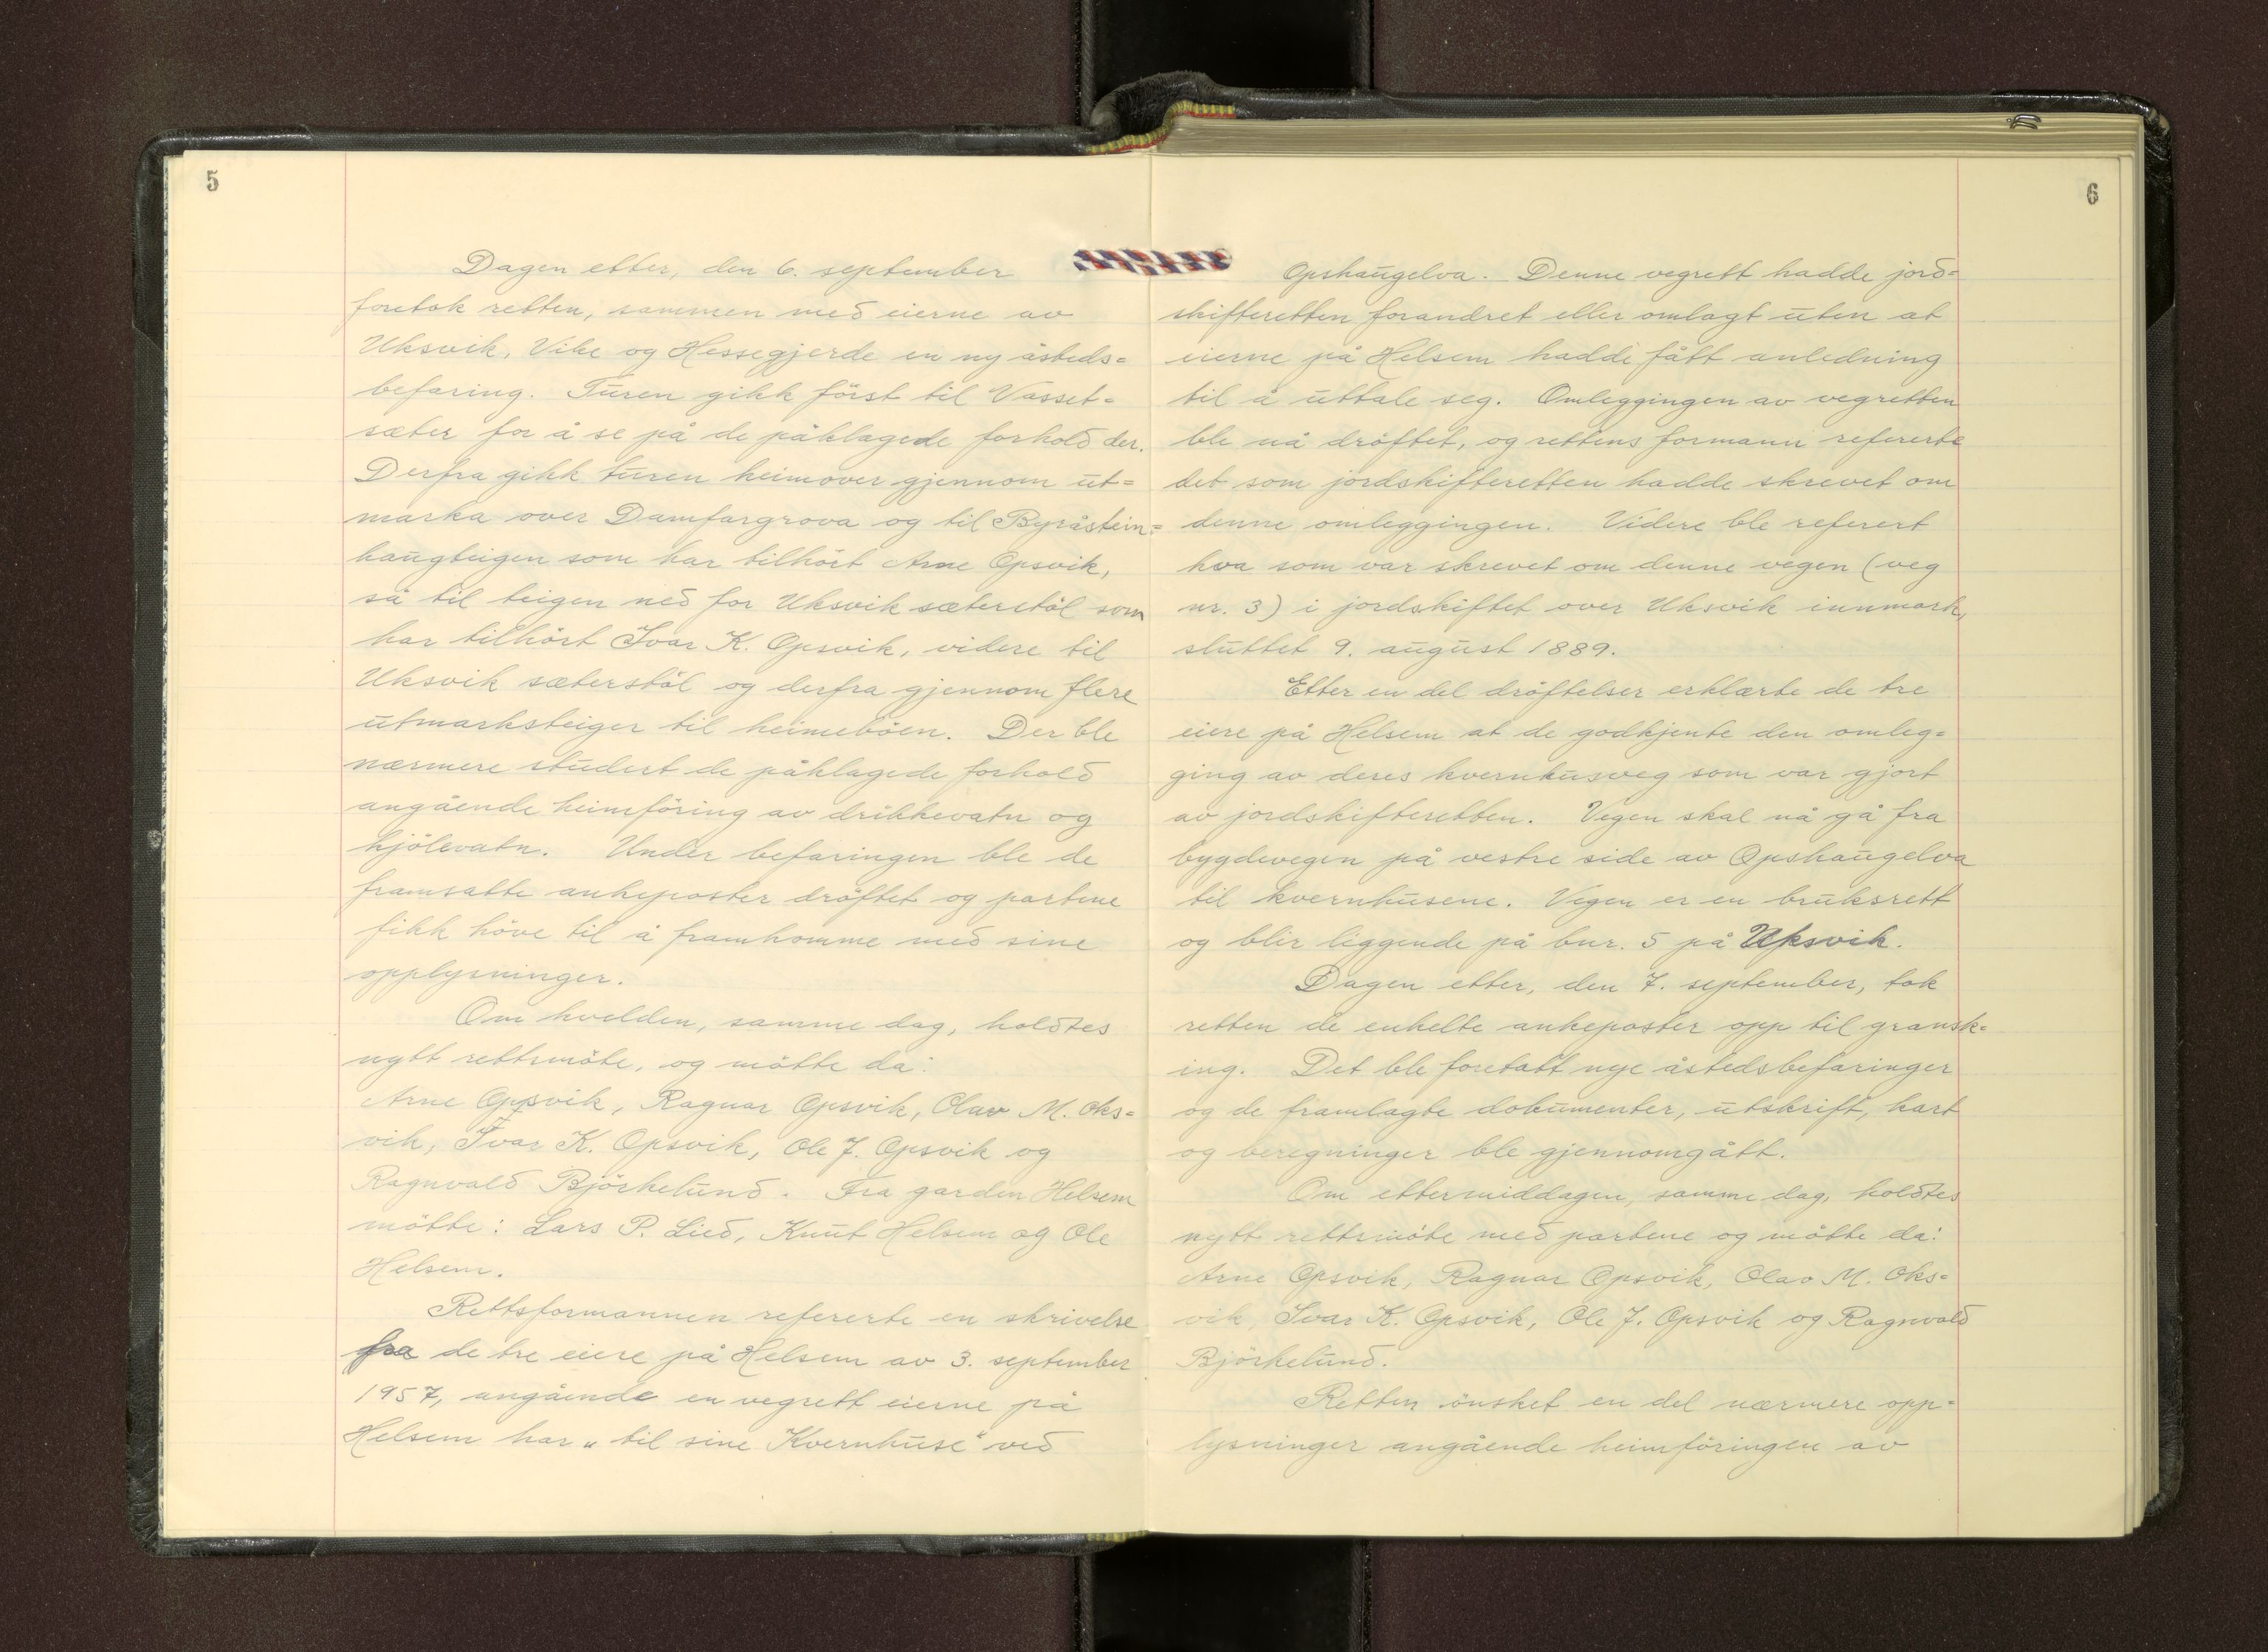 5
Dagen etter, den 6. september
foretok retten, sammen med eierne av
Uksvik, Vike og Hessegjerde en ny åsteds=
befaring. Turen gikk först til Vasset=
sæter for å se på de påklagede forhold der.
Derfra gikk turen heimover gjennom ut=
marka over Damfargrova og til Byråstein=
haugteigen som har tilhört Arne Opsvik,
så til teigen ned for Uksvik sæterstöl som
har tilhört Ivar K. Opsvik, videre til
Uksvik sæterstöl og derfra gjennom flere
utmarksteiger til heimeböen. Der ble
nærmere studert de påklagede forhold
angående heimföring av drikkevatn og
kjölevatn. Under befaringen ble de
framsatte ankeposter dröftet og partene
fikk höve til å framkomme med sine
opplysninger.
Om kvelden, samme dag, holdtes
nytt rettsmöte, og mötte da:
Arne Opsvik, Ragnar Opsvik, Olav M. Oks=
vik, Ivar K. Opsvik, Ole J. Opsvik og
Ragnvald Björkelund. Fra garden Helsem
mötte: Lars P. Lied, Knut Helsem og Ole
Helsem.
Rettsformannen refererte en skrivelse
fra de tre eiere på Helsem av 3. september
1957, angående en vegrett eierne på
Helsem har „til sine Kvernhuse" ved
6
Opshaugelva. Denne vegrett hadde jord=
skifteretten forandret eller omlagt uten at
eierne på Helsem hadde fått anledning
til å uttale seg. Omleggingen av vegretten
ble nå dröftet, og rettens formann refererte
det som jordskifteretten hadde skrevet om
denne omleggingen. Videre ble referert
hva som var skrevet om denne vegen (veg
nr. 3) i jordskiftet over Uksvik innmark,
sluttet 9. august 1889.
Etter en del dröftelser erklærte de tre
eiere på Helsem at de godkjente den omleg=
ging av deres kvernhusveg som var gjort
av jordskifteretten. Vegen skal nå gå fra
bygdevegen på vestre side av Opshaugelva
til kvernhusene. Vegen er en bruksrett
og blir liggende på bnr. 5 på Uksvik.
Dagen etter, den 7. september, tok
retten de enkelte ankeposter opp til gransk=
ing. Det ble foretatt nye åstedsbefaringer
og de framlagte dokumenter, utskrift, kart
og beregninger ble gjennomgått.
Om ettermiddagen, samme dag, holdtes
nytt rettsmöte med partene og mötte da:
Arne Opsvik, Ragnar Opsvik, Olav M. Oks=
vik, Ivar K. Opsvik, Ole J. Opsvik og Ragnvald
Björkelund.
Retten önsket en del nærmere opp=
lysninger angående heimföringen av